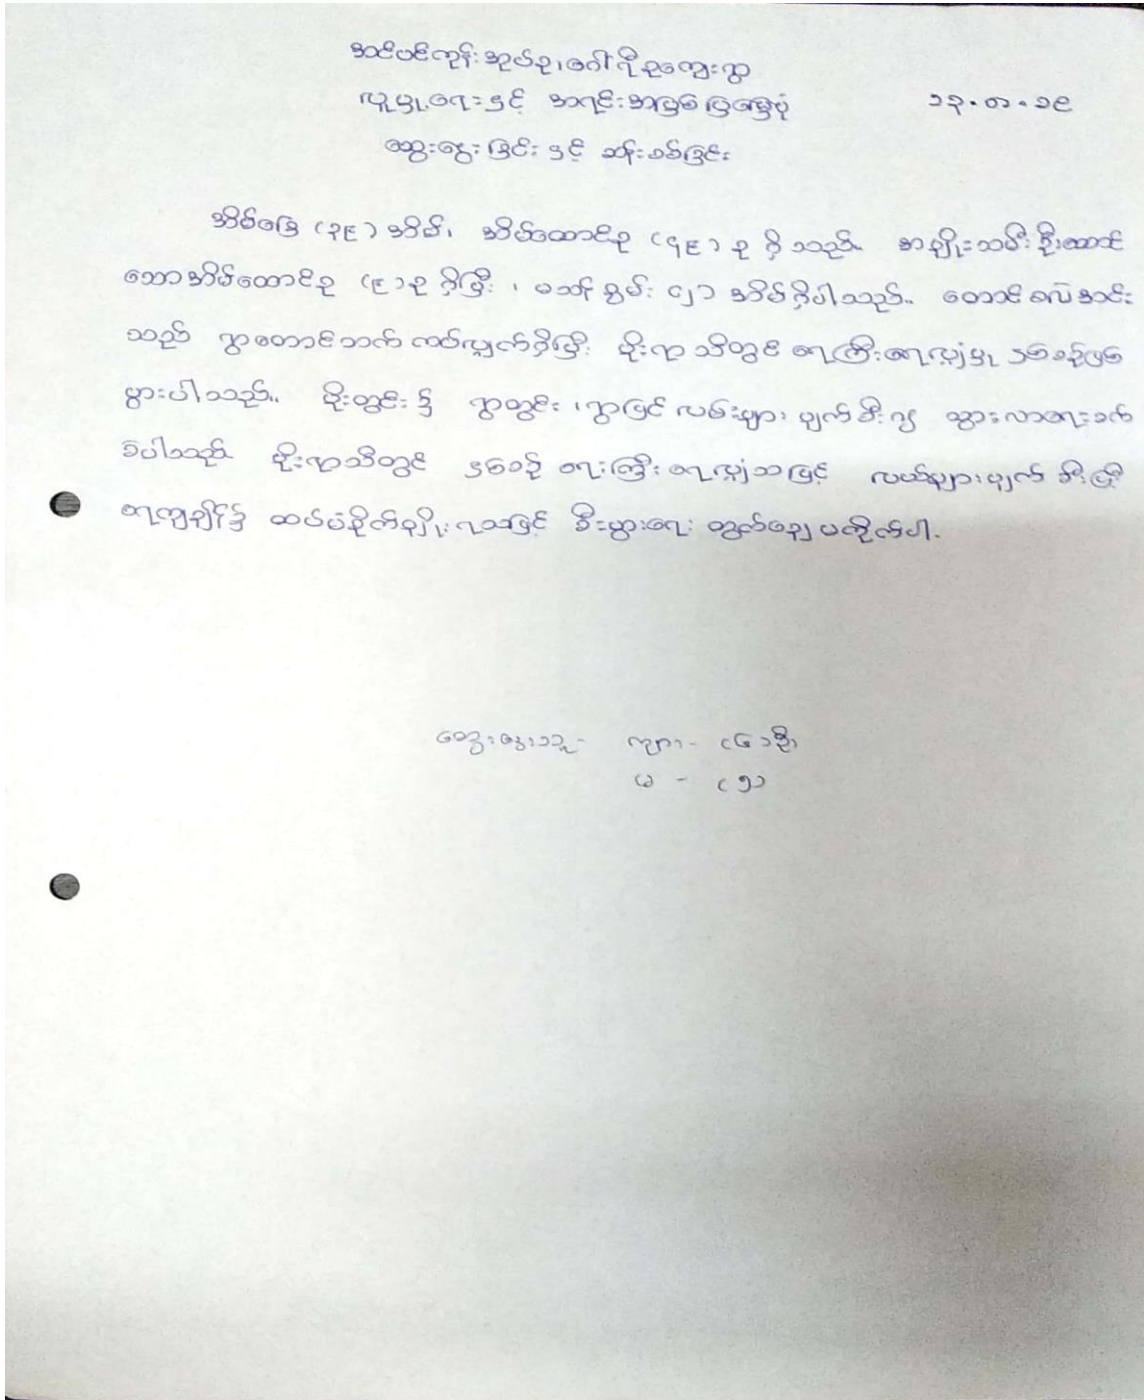 အင်ပင်ကုန်းအုပ်စု၊ ဂေါ်ရီစုကျေးရွာ
လူမှုရေးနှင့် အရင်းအမြစ်ပြမြေပုံ ၁၃.၈.၁၉
ဆွေးနွေးခြင်းနှင့် ဆန်းစစ်ခြင်း
အိမ်ခြေ (၃၉) အိမ်၊ အိမ်ထောင်စု (၄၉) စု ရှိသည်။ အမျိုးသမီးဦးဆောင်
သောအိမ်ထောင်စု (၉) စုရှိပြီး၊ မသန်စွမ်း (၂) အိမ်ရှိပါသည်။ တောင်စလင်းချောင်း
သည် ရွာတောင်ဘက် ကပ်လျှက်ရှိပြီး မိုးရာသီတွင် ရေကြီးရေလျှံမှု နှစ်စဉ်ဖြစ်
ပွားပါသည်။ မိုးတွင်း၌ ရွာတွင်း၊ ရွာပြင်လမ်းများ ပျက်စီး၍ သွားလာရေးခက်
ခဲပါသည်။ မိုးရာသီတွင် နှစ်စဉ် ရေကြီးရေလျှံသဖြင့် လယ်များပျက်စီးပြီး
ရေကျချိန်၌ ထပ်မံစိုက်ပျိုးရသဖြင့် စီးပွားရေး တွက်ခြေမကိုက်ပါ။
ဆွေးနွေးသူ - ကျား - (၆) ဦး
မ - (၅)